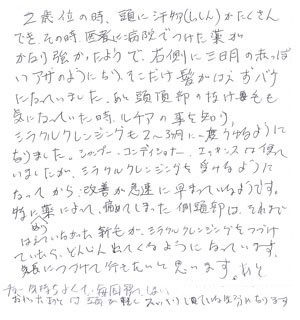 2歳位の時、頭に汗物(しっしん)がたくさん
でき、その時、医者に病院でつけた薬が
かなり強かったようで、右側に三日月の赤っぽい
アザのようになり、そこだけ髪がはえずハゲ
になっていました。あと頭頂部の抜け毛も
気になっていた時、ルチアの事を知り、
ミラクルクレンジングも2〜3月に一度うけるように
なりました。シャンプー、コンディショナー、エッセンスは使って
いましたが、ミラクルクレンジングを受けるように
なってから、改善が急速に早まっているようです。
特に薬によって、痛めてしまった側頭部は、それまで
はえていなかった新毛が、ミラクルクレンジングをつづけ
ていたら、どんどん出てくるようになっています。
気長につづけて行きたいと思います。あと
気持ちよくて、毎回
おわったあとは頭が軽くスッキリしている